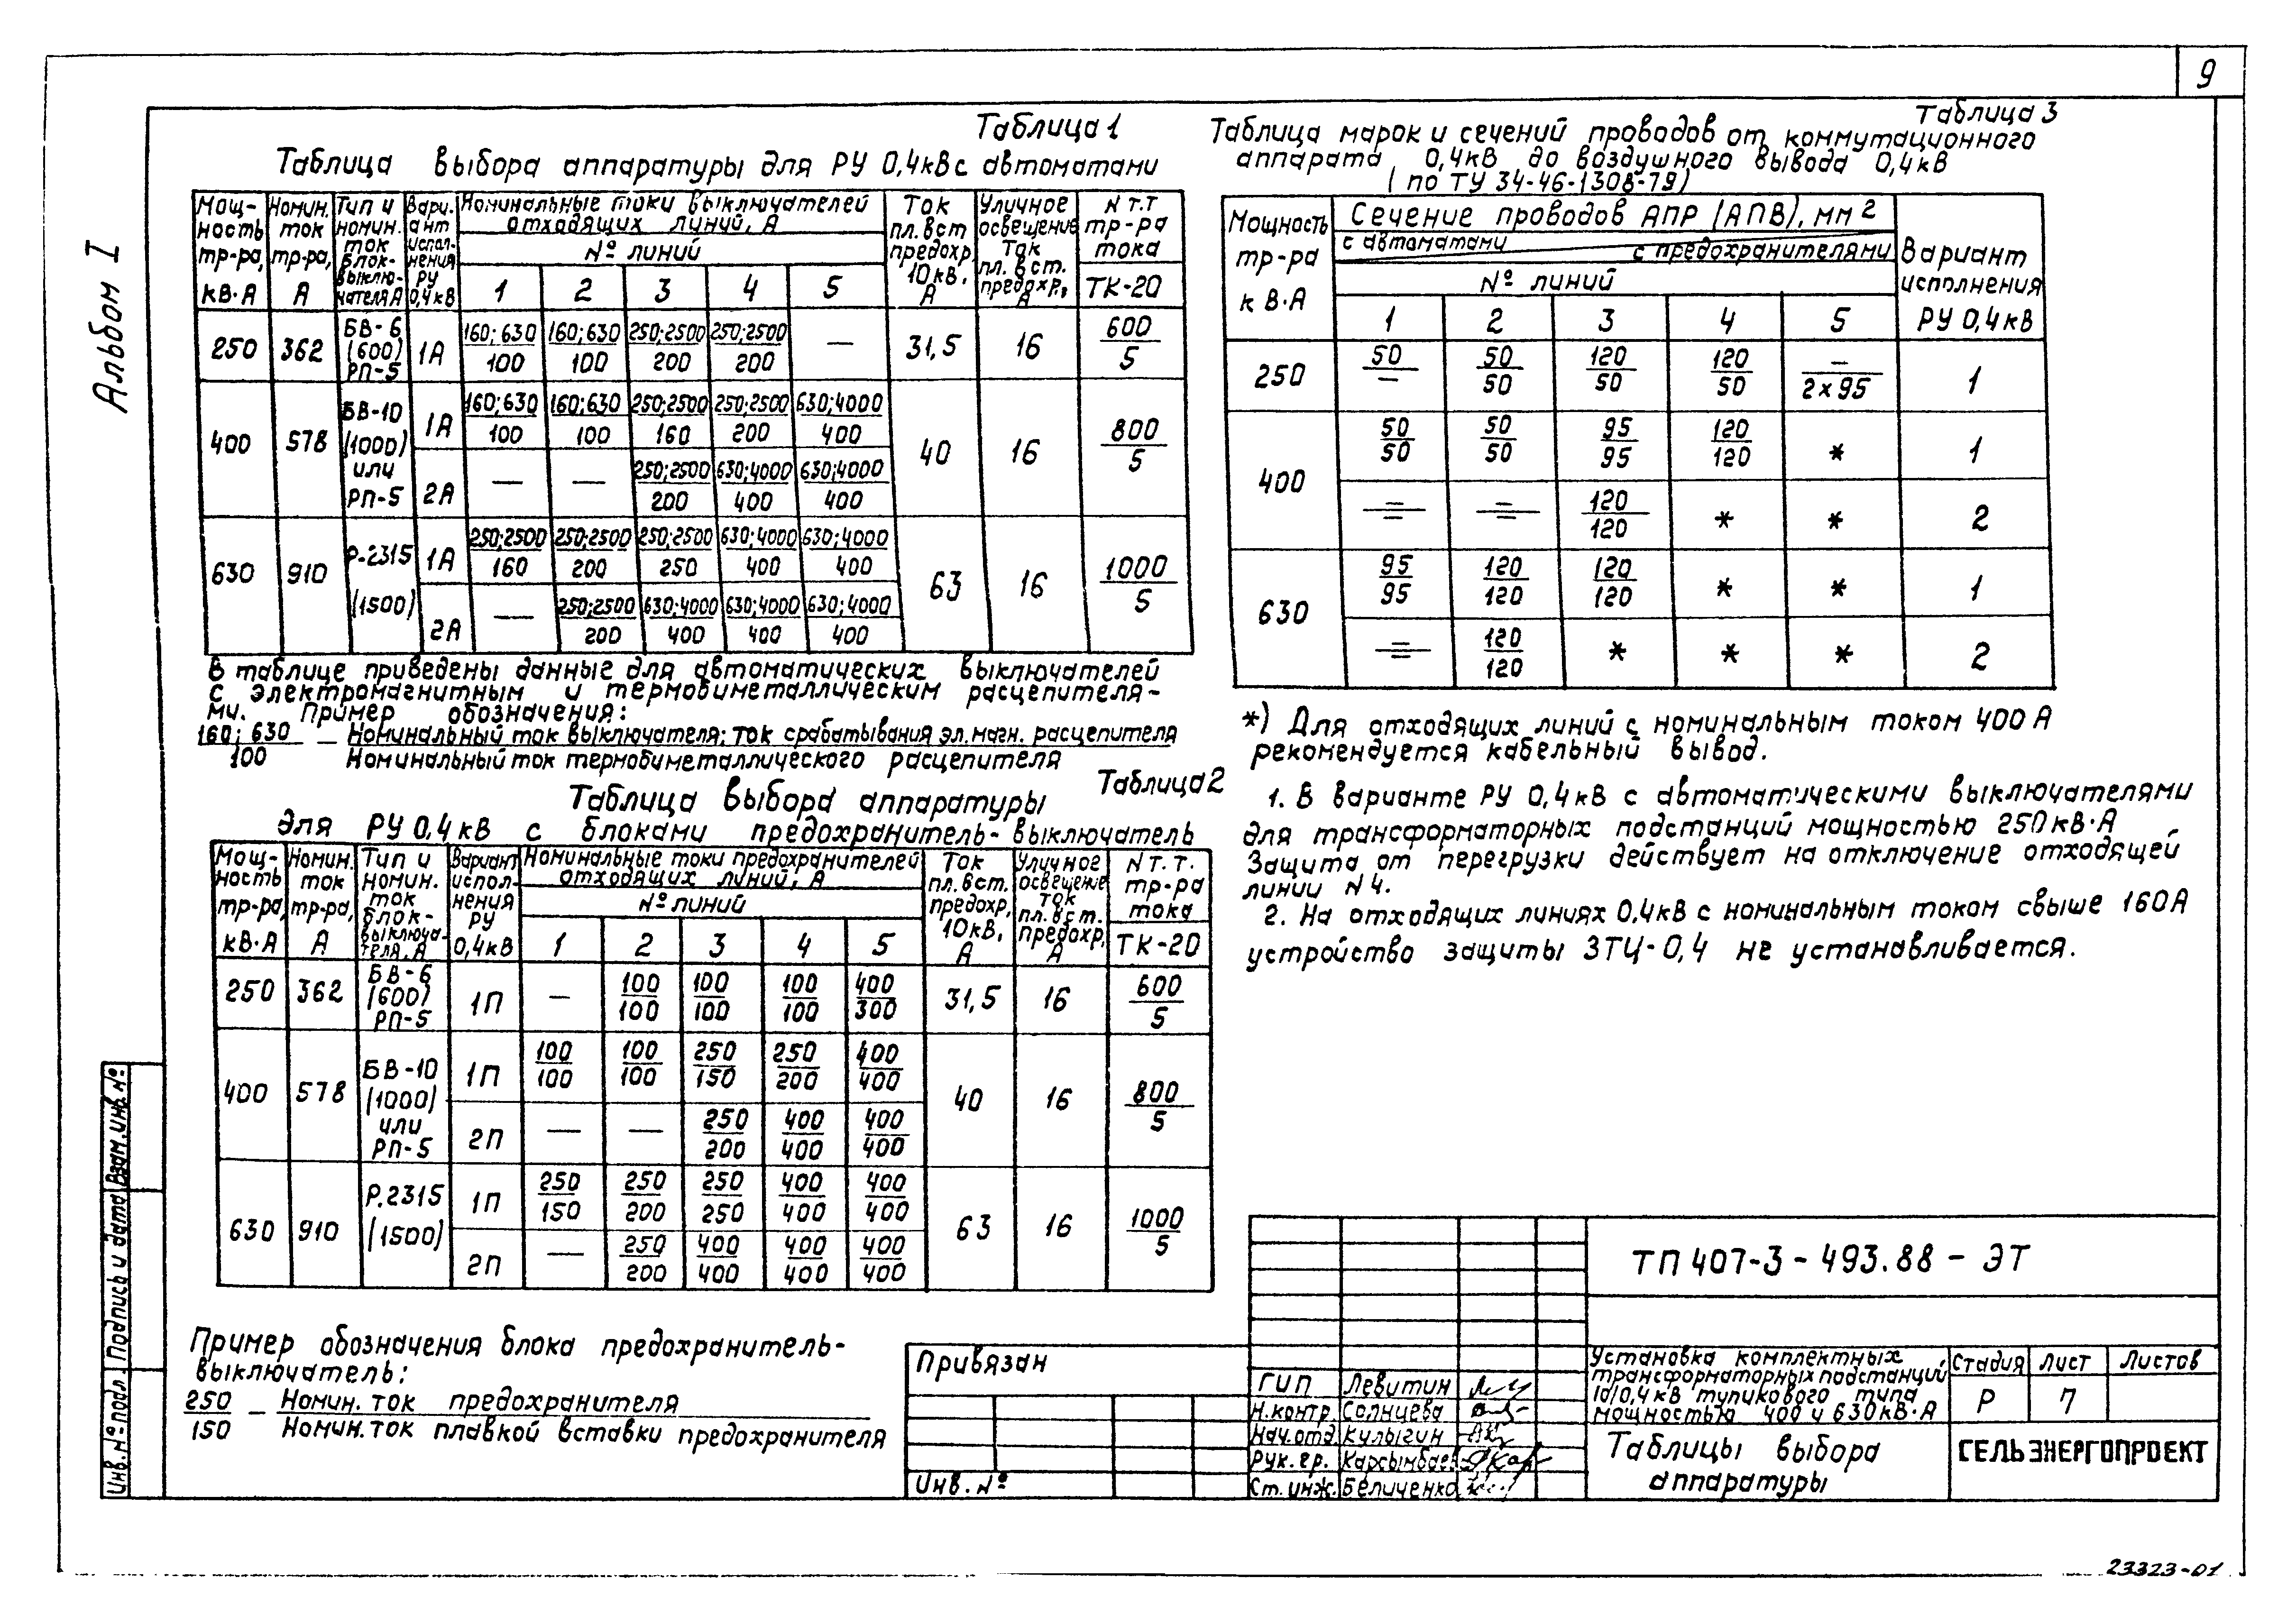 9
Альбом I
Таблица 1
Таблица выбора аппаратуры для РУ 0,4кВ с автоматами
Мощность тр-ра, кВ·А | Номин. ток тр-ра, А | Тип и номин. ток блок-выключателя А | Вариант исполнения РУ 0,4кВ | Номинальные токи выключателей отходящих линий, А | Ток пл. вст предохр. 10кВ, А | Уличное освещение ток пл. вст. предохр., А | N т.т тр-ра тока
№ линий
1 | 2 | 3 | 4 | 5 | ТК-20
250 | 362 | БВ-6 (600) РП-5 | 1А | 160;630/100 | 160;630/100 | 250;2500/200 | 250;2500/200 | — | 31,5 | 16 | 600/5
400 | 578 | БВ-10 (1000) или РП-5 | 1А | 160;630/100 | 160;630/100 | 250;2500/160 | 250;2500/200 | 630;4000/400 | 40 | 16 | 800/5
2А | — | — | 250;2500/200 | 630;4000/400 | 630;4000/400
630 | 910 | Р-2315 (1500) | 1А | 250;2500/160 | 250;2500/200 | 250;2500/250 | 630;4000/400 | 630;4000/400 | 63 | 16 | 1000/5
2А | — | 250;2500/200 | 630;4000/400 | 630;4000/400 | 630;4000/400
В таблице приведены данные для автоматических выключателей
с электромагнитным и термобиметаллическим расцепителя-
ми. Пример обозначения:
160; 630 — Номинальный ток выключателя; ток срабатывания эл. магн. расцепителя
100 Номинальный ток термобиметаллического расцепителя
Таблица 2
Таблица выбора аппаратуры
для РУ 0,4кВ с блоками предохранитель-выключатель
Мощность тр-ра, кВ·А | Номин. ток тр-ра, А | Тип и номин. ток блок-выключателя, А | Вариант исполнения РУ 0,4кВ | Номинальные токи предохранителей отходящих линий, А | Ток пл. вст. предохр, 10кВ, А | Уличное освещение ток пл. вст. предохр, А | N т.т. тр-ра тока
№ линий
1 | 2 | 3 | 4 | 5 | ТК-20
250 | 362 | БВ-6 (600) РП-5 | 1П | — | 100/100 | 100/100 | 100/100 | 400/300 | 31,5 | 16 | 600/5
400 | 578 | БВ-10 (1000) или РП-5 | 1П | 100/100 | 100/100 | 250/150 | 250/200 | 400/400 | 40 | 16 | 800/5
2П | — | — | 250/200 | 400/400 | 400/400
630 | 910 | Р.2315 (1500) | 1П | 250/150 | 250/200 | 250/250 | 400/400 | 400/400 | 63 | 16 | 1000/5
2П | — | 250/200 | 400/400 | 400/400 | 400/400
Пример обозначения блока предохранитель-
выключатель:
250 — Номин. ток предохранителя
150 Номин. ток плавкой вставки предохранителя
Таблица 3
Таблица марок и сечений проводов от коммутационного
аппарата 0,4кВ до воздушного вывода 0,4кВ
(по ТУ 34-46-1308-79)
Мощность тр-ра кВ·А | Сечение проводов АПР (АПВ), мм2 | Вариант исполнения РУ 0,4кВ
с автоматами | с предохранителями
№ линий
1 | 2 | 3 | 4 | 5
250 | 50/— | 50/50 | 120/50 | 120/50 | —/2x95 | 1
400 | 50/50 | 50/50 | 95/95 | 120/120 | * | 1
—/— | —/— | 120/120 | * | * | 2
630 | 95/95 | 120/120 | 120/120 | * | * | 1
—/— | 120/120 | * | * | * | 2
*) Для отходящих линий с номинальным током 400 А
рекомендуется кабельный вывод.
1. В варианте РУ 0,4кВ с автоматическими выключателями
для трансформаторных подстанций мощностью 250кВ·А
Защита от перегрузки действует на отключение отходящей
линии N 4.
2. На отходящих линиях 0,4кВ с номинальным током свыше 160А
устройство защиты ЗТЦ-0,4 не устанавливается.
Инв. № подл. | Подпись и дата | Взам. инв. №
Привязан
Инв. №
ТП 407-3-493.88 - ЭТ
ГИП Левитин
Н.контр. Солнцева
Нач.отд. Кулыгин
Рук. гр. Карсымбаев
Ст. инж. Беличенко
Установка комплектных
трансформаторных подстанций
10/0,4кВ тупикового типа
мощностью 400 и 630кВ·А
Стадия | Лист | Листов
Р | 7
Таблицы выбора
аппаратуры
СЕЛЬЭНЕРГОПРОЕКТ
23323-01